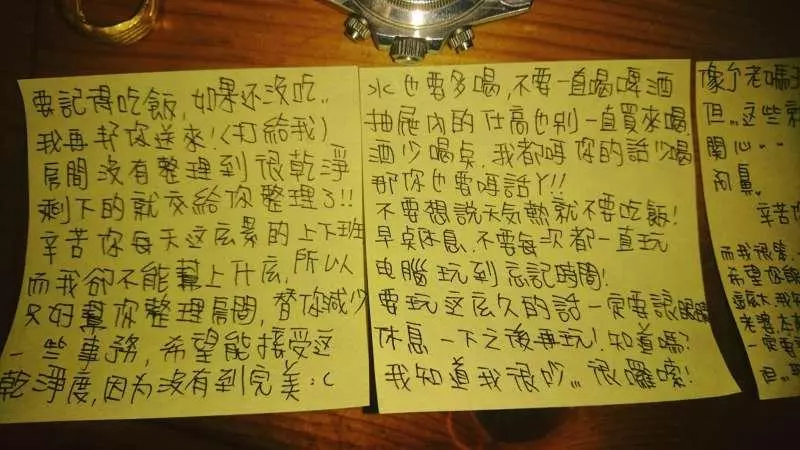 要記得吃飯,如果还沒吃..
我再幫你送來!(打給我)
房間沒有整理到很乾淨
剩下的就交給你整理了!!
辛苦你每天这庅累的上下班
而我卻不能幫上什庅,所以
只好幫你整理房間,替你減少
一些事務,希望能接受这
乾淨度,因为沒有到完美:(
水也要多喝,不要一直喝啤酒
抽屜內的仕高也別一直買來喝,
酒少喝点,我都听你的話少喝
那你也要听話丫!!
不要想說天氣熱就不要吃飯!
早点休息,不要每次都一直玩
电腦玩到忘記時間!
要玩这庅久的話一定要讓眼睛
休息一下之後再玩!知道嗎?
我知道我很吵... 很囉嗦!
像个老媽
但..这些
関心..
辛苦
而我很
希望你能
一定要
但..